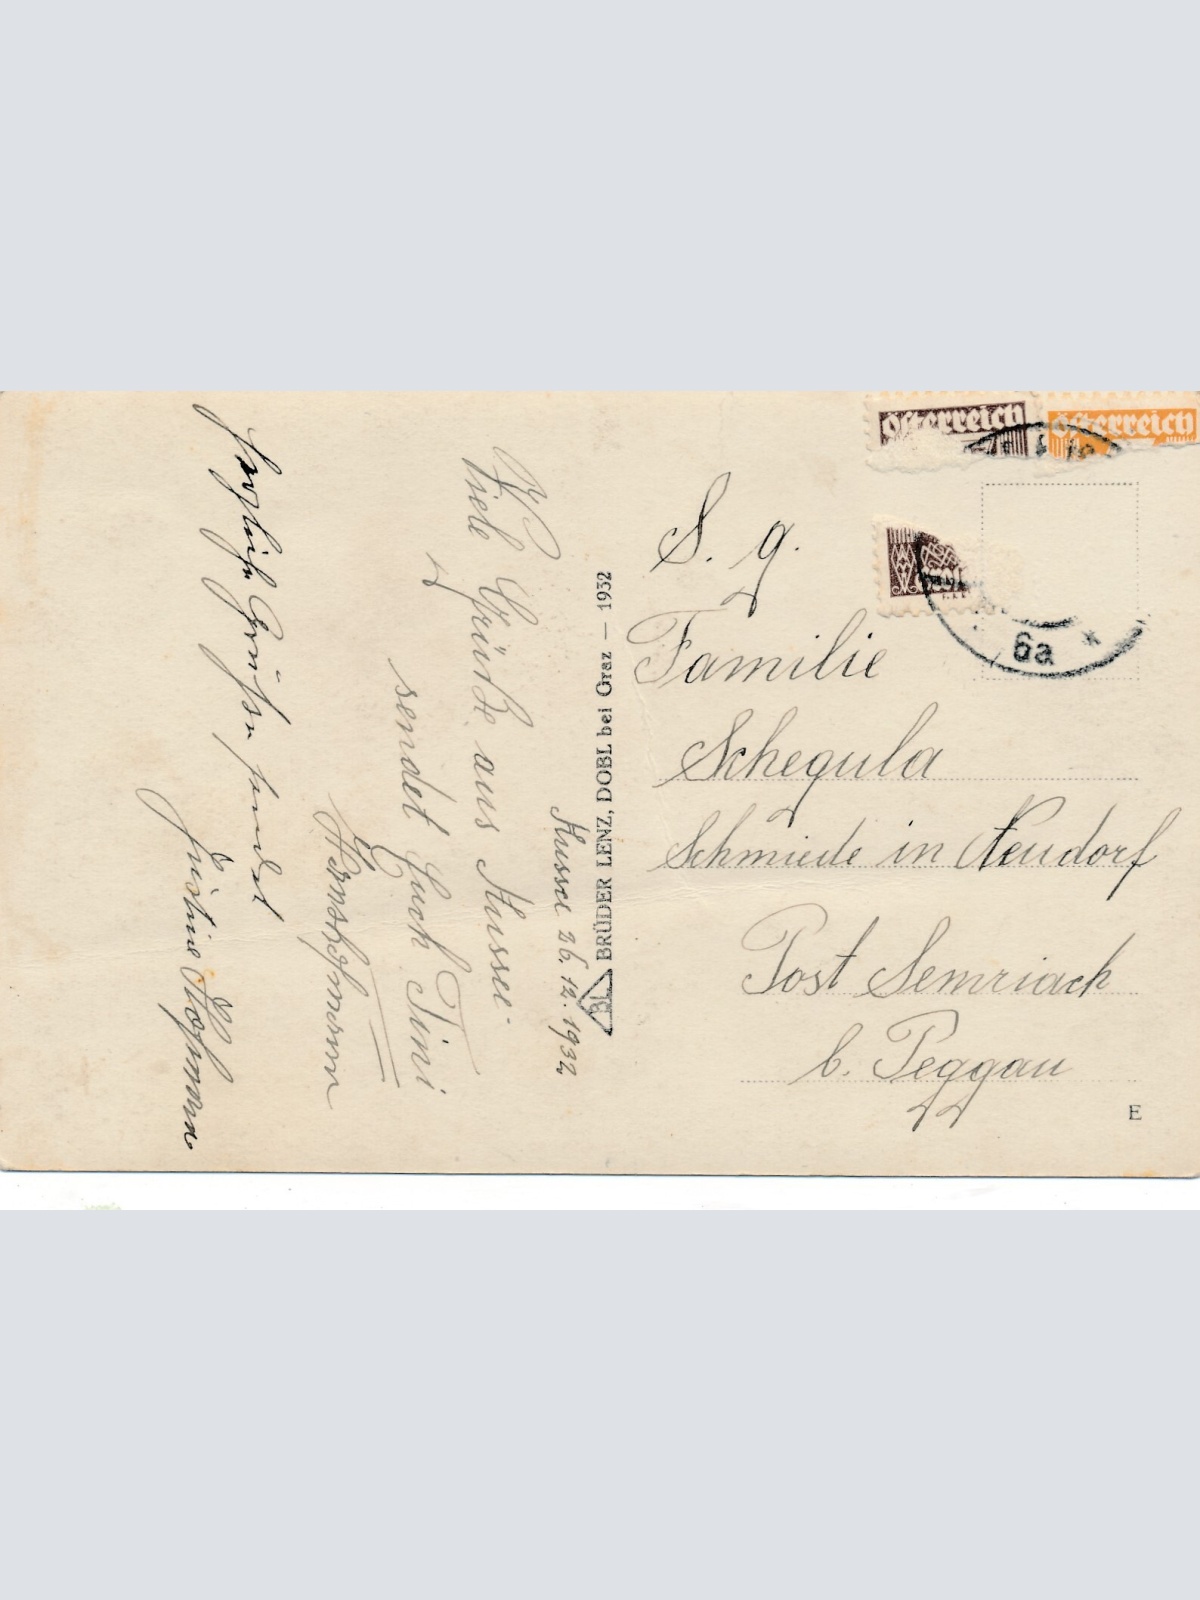 Aussee 26.12.1932
Viele Grüße aus Aussee
sendet Euch Tini
Herzliche Grüße sendet
Justine Hofmann
BL BRÜDER LENZ, DOBL bei Graz — 1932
österreich österreich
6a *
S. g.
Familie
Schegula
Schmiede in Neudorf
Post Semriach
b. Peggau
E